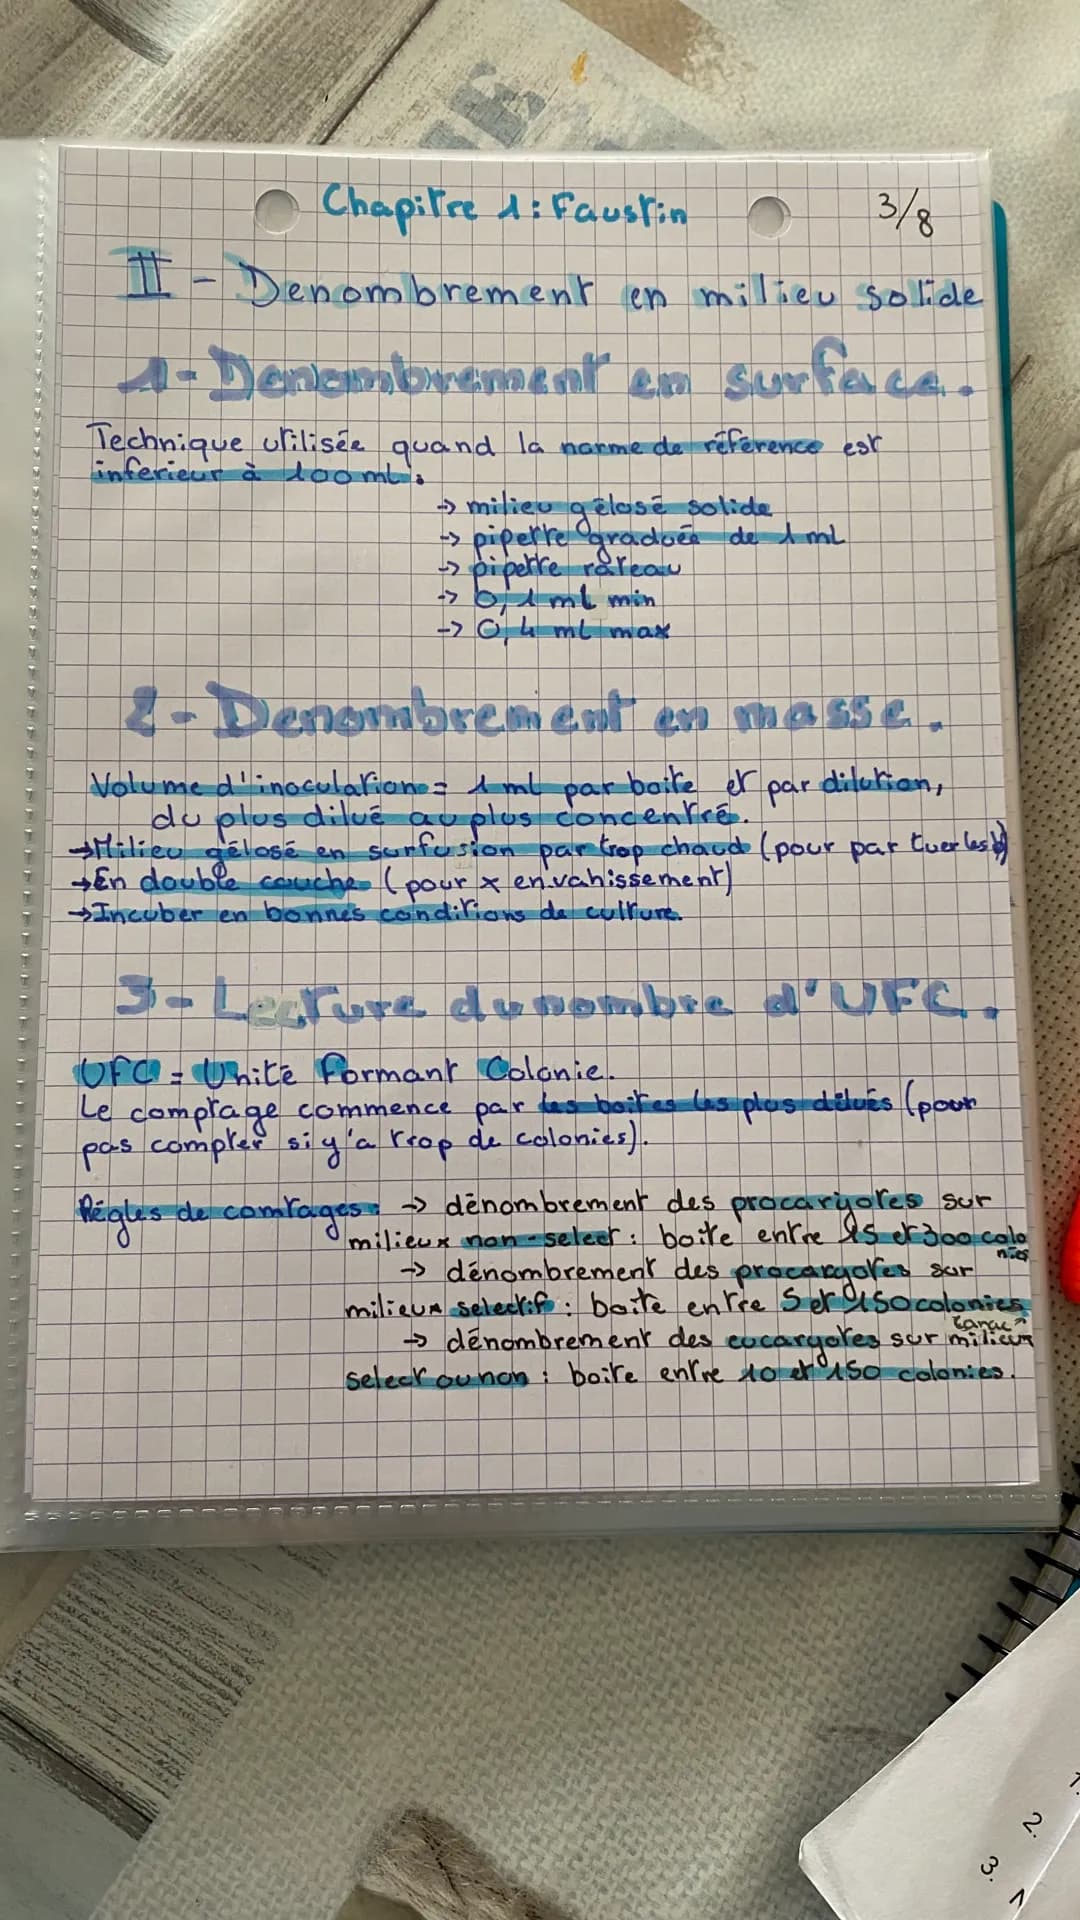 Chapitre 1 : Faustin
3/8
II - Denombrement en milieu solide
1 - Denombrement en surface.
Technique utilisée quand la norme de référence est
inferieur à 100 mL :
→ milieu gélosé solide
→ pipette graduée de 1 mL
→ pipette râteau
→ 0,1 mL min
→ 0,4 mL max
2 - Denombrement en masse.
Volume d'inoculation = 1 mL par boite et par dilution,
du plus dilué au plus concentré.
→ Milieu gélosé en surfusion par trop chaud (pour par tuer les b)
→ En double couche (pour x envahissement)
→ Incuber en bonnes conditions de culture.
3 - Lecture du nombre d'UFC.
UFC = Unité Formant Colonie.
Le comptage commence par les boites les plus dilués (pour
pas compter si y'a trop de colonies).
Régles de comtages : → dénombrement des procaryotes sur
milieux non-select : boite entre 15 et 300 colo
nies
→ dénombrement des procaryotes sur
milieux selectif : boite entre 5 et 150 colonies
carac
→ dénombrement des eucaryotes sur milieux
select ou non : boite entre 10 et 150 colonies.
1.
2.
3.